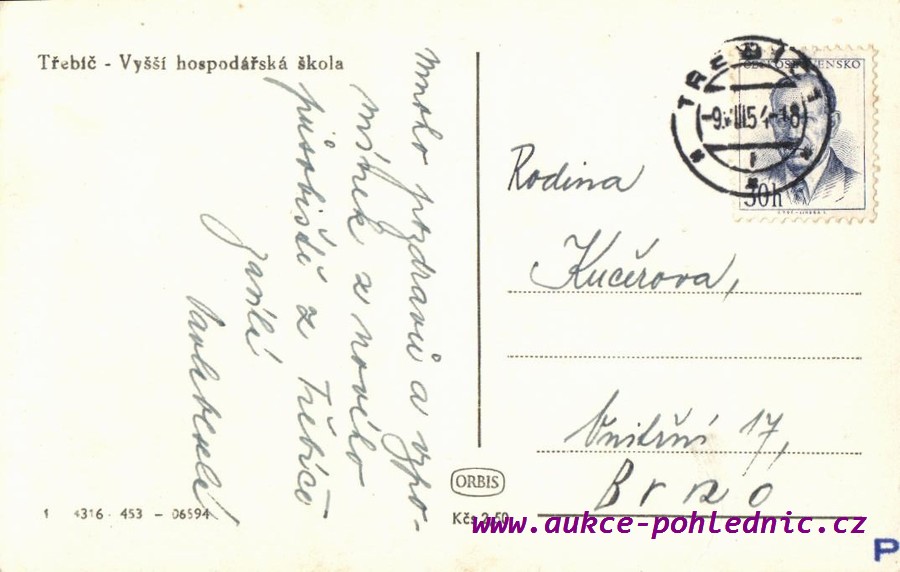 Třebíč - Vyšší hospodářská škola
Mnoho pozdravů a vzpo-
mínek z nového
působiště z Třebíče
ČESKOSLOVENSKO
30h
TŘEBÍČ
-9.VIII.54-18
Rodina
Kučerova,
Vnitřní 17,
Brno
ORBIS
1 4316 - 453 - 06594
Kčs 2,50
www.aukce-pohlednic.cz
P